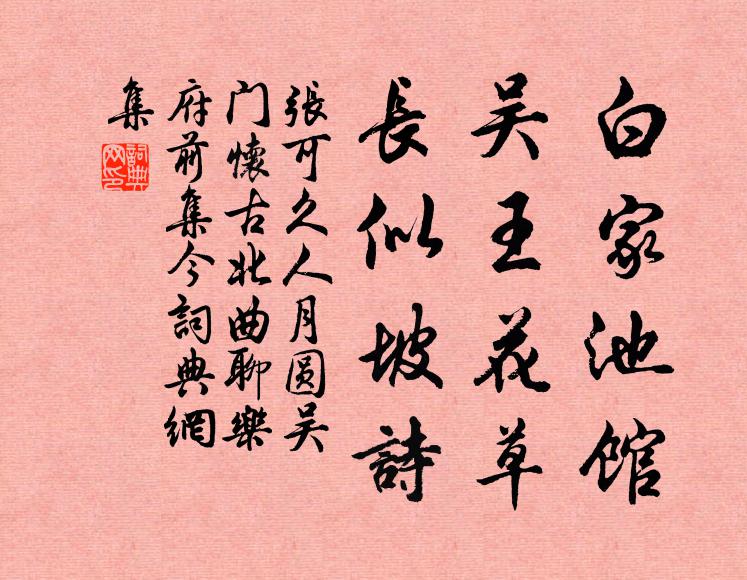 白家池馆
吴王花草
長似坡詩
張可久人月圆吴
门懷古北曲聊樂
府前集今詞典網
集
詞典網印